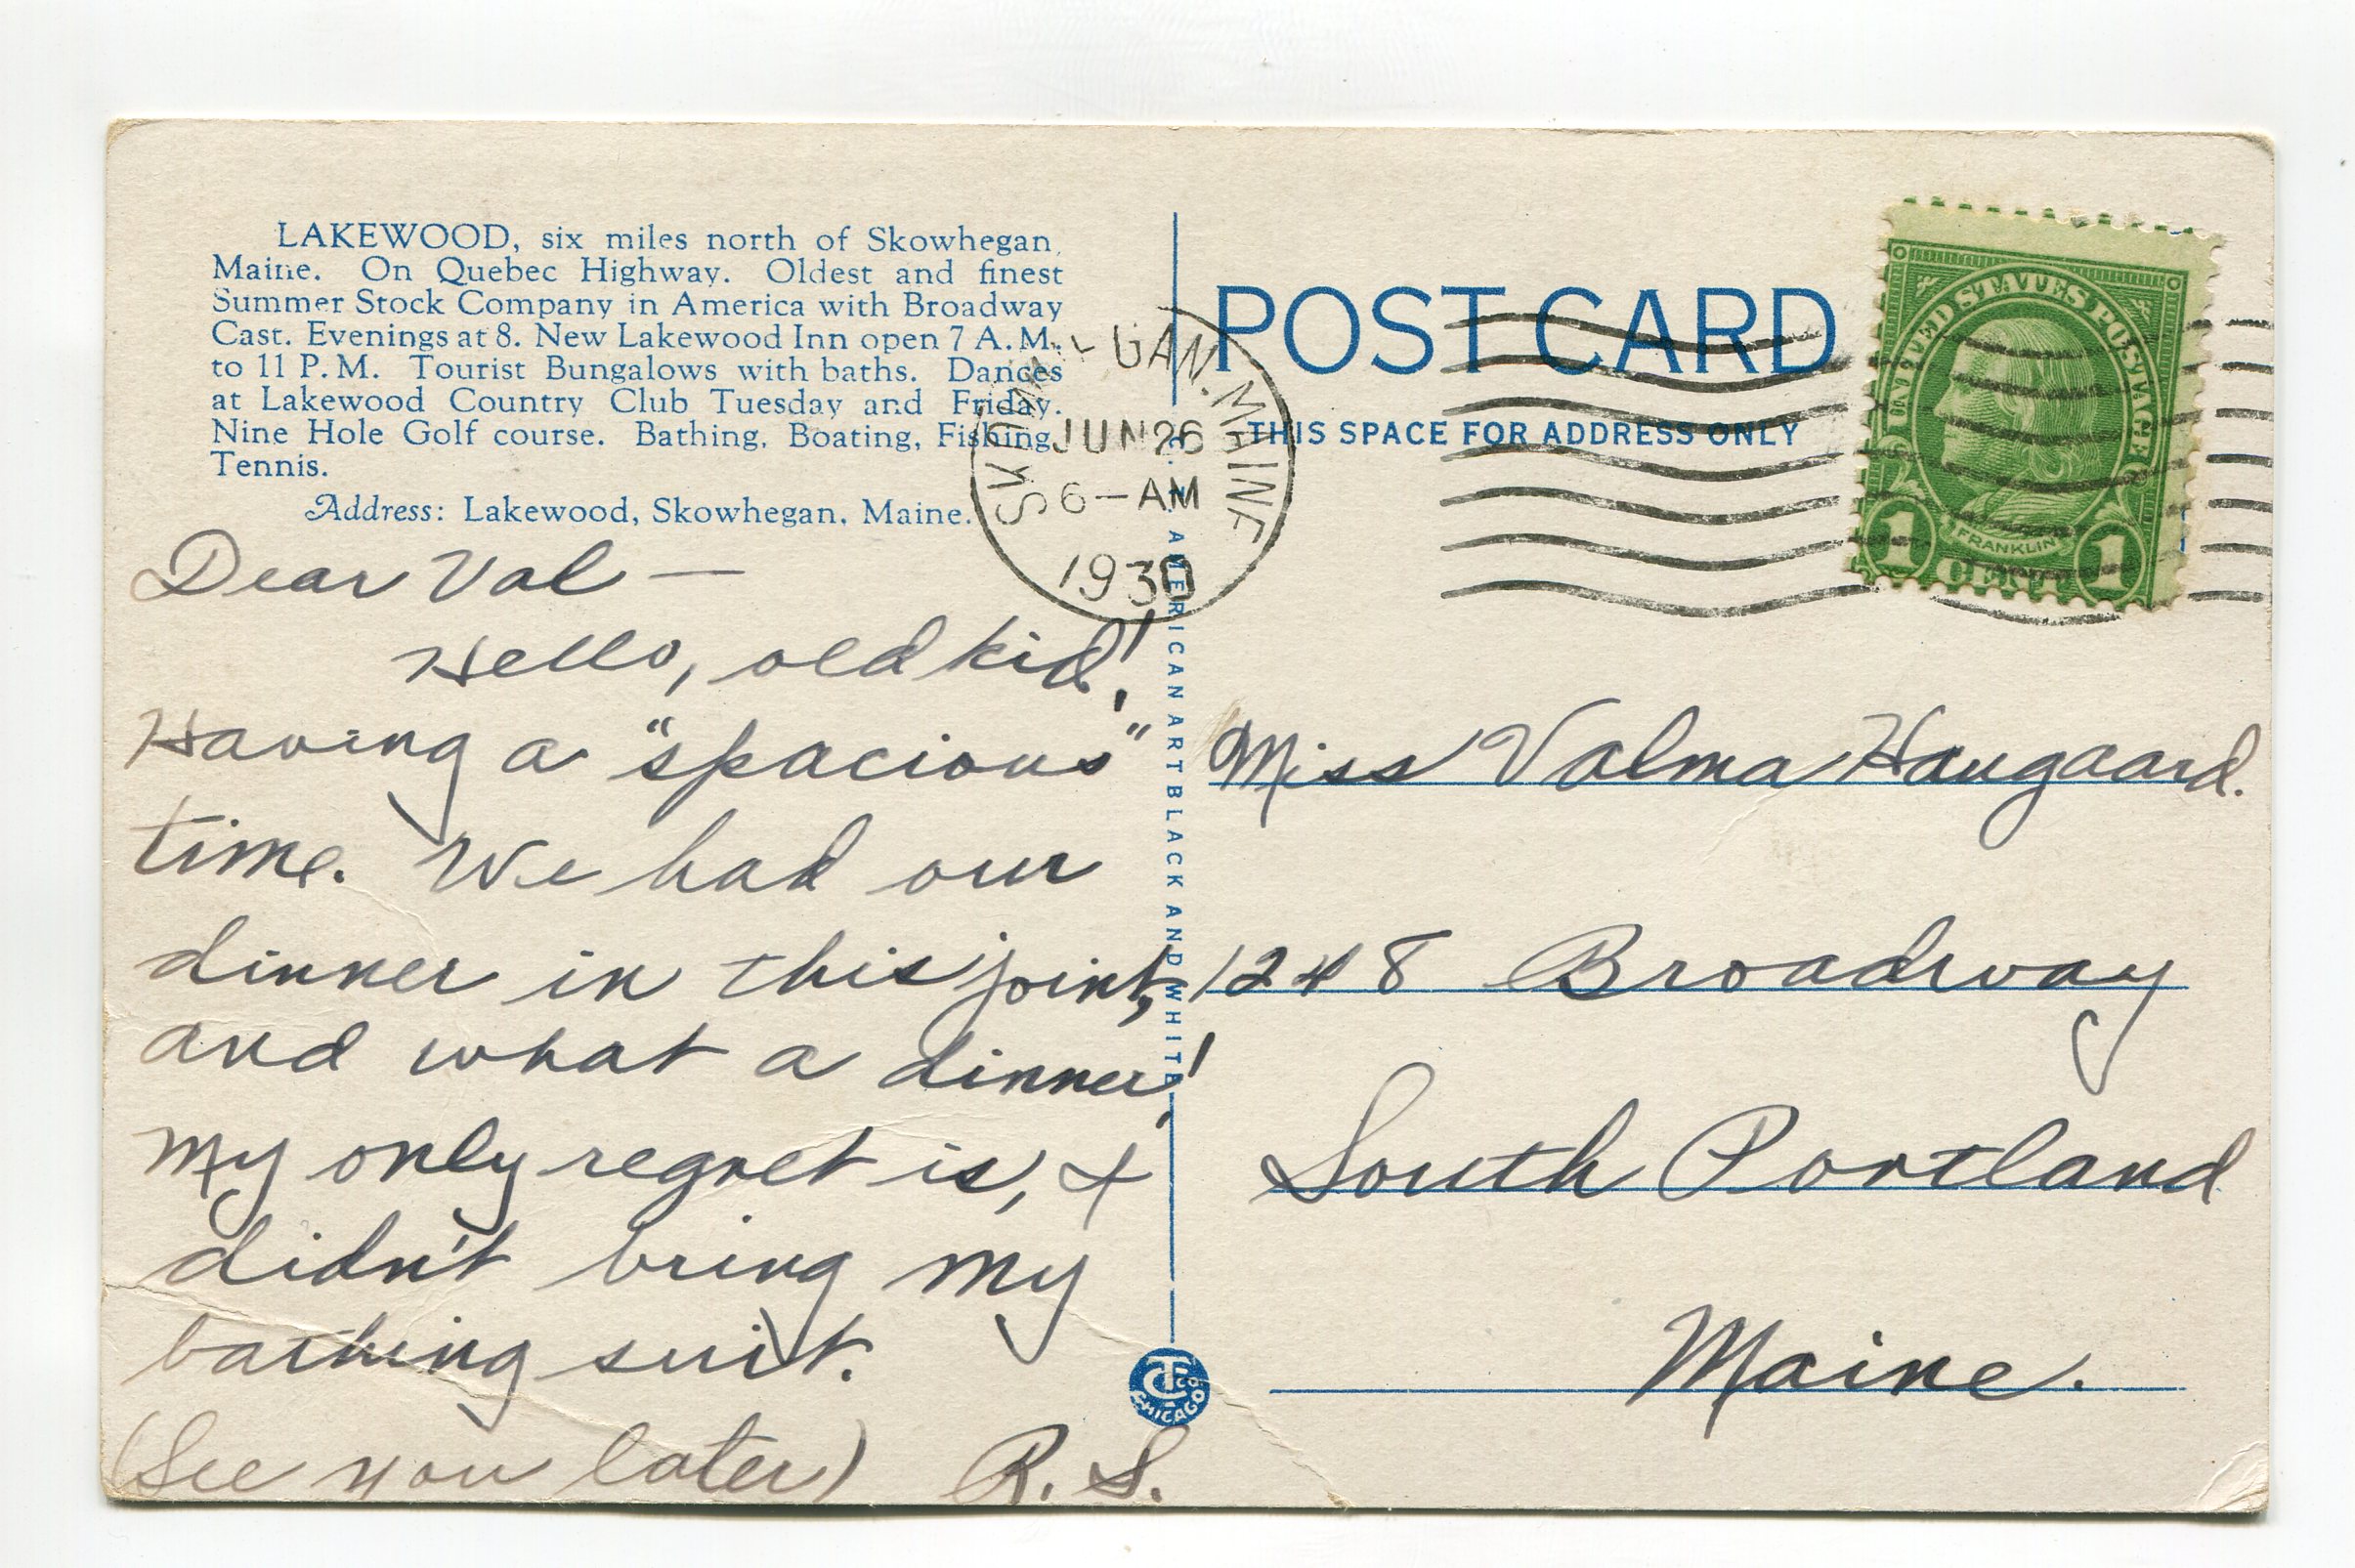 LAKEWOOD, six miles north of Skowhegan,
Maine. On Quebec Highway. Oldest and finest
Summer Stock Company in America with Broadway
Cast. Evenings at 8. New Lakewood Inn open 7 A.M.
to 11 P.M. Tourist Bungalows with baths. Dances
at Lakewood Country Club Tuesday and Friday.
Nine Hole Golf course. Bathing, Boating, Fishing,
Tennis.
Address: Lakewood, Skowhegan, Maine.
Dear Val —
Hello, old kid!
Having a "spacious"
time. We had our
dinner in this joint,
and what a dinner!
My only regret is, I
didn't bring my
bathing suit.
(See you later) R. S.
SKOWHEGAN, MAINE
JUN 26
6 – AM
1930
AMERICAN ART BLACK AND WHITE
CT CO.
CHICAGO
POST CARD
THIS SPACE FOR ADDRESS ONLY
UNITED STATES POSTAGE
FRANKLIN
1 CENT 1
Miss Valma Haugaard.
1248 Broadway
South Portland
Maine.